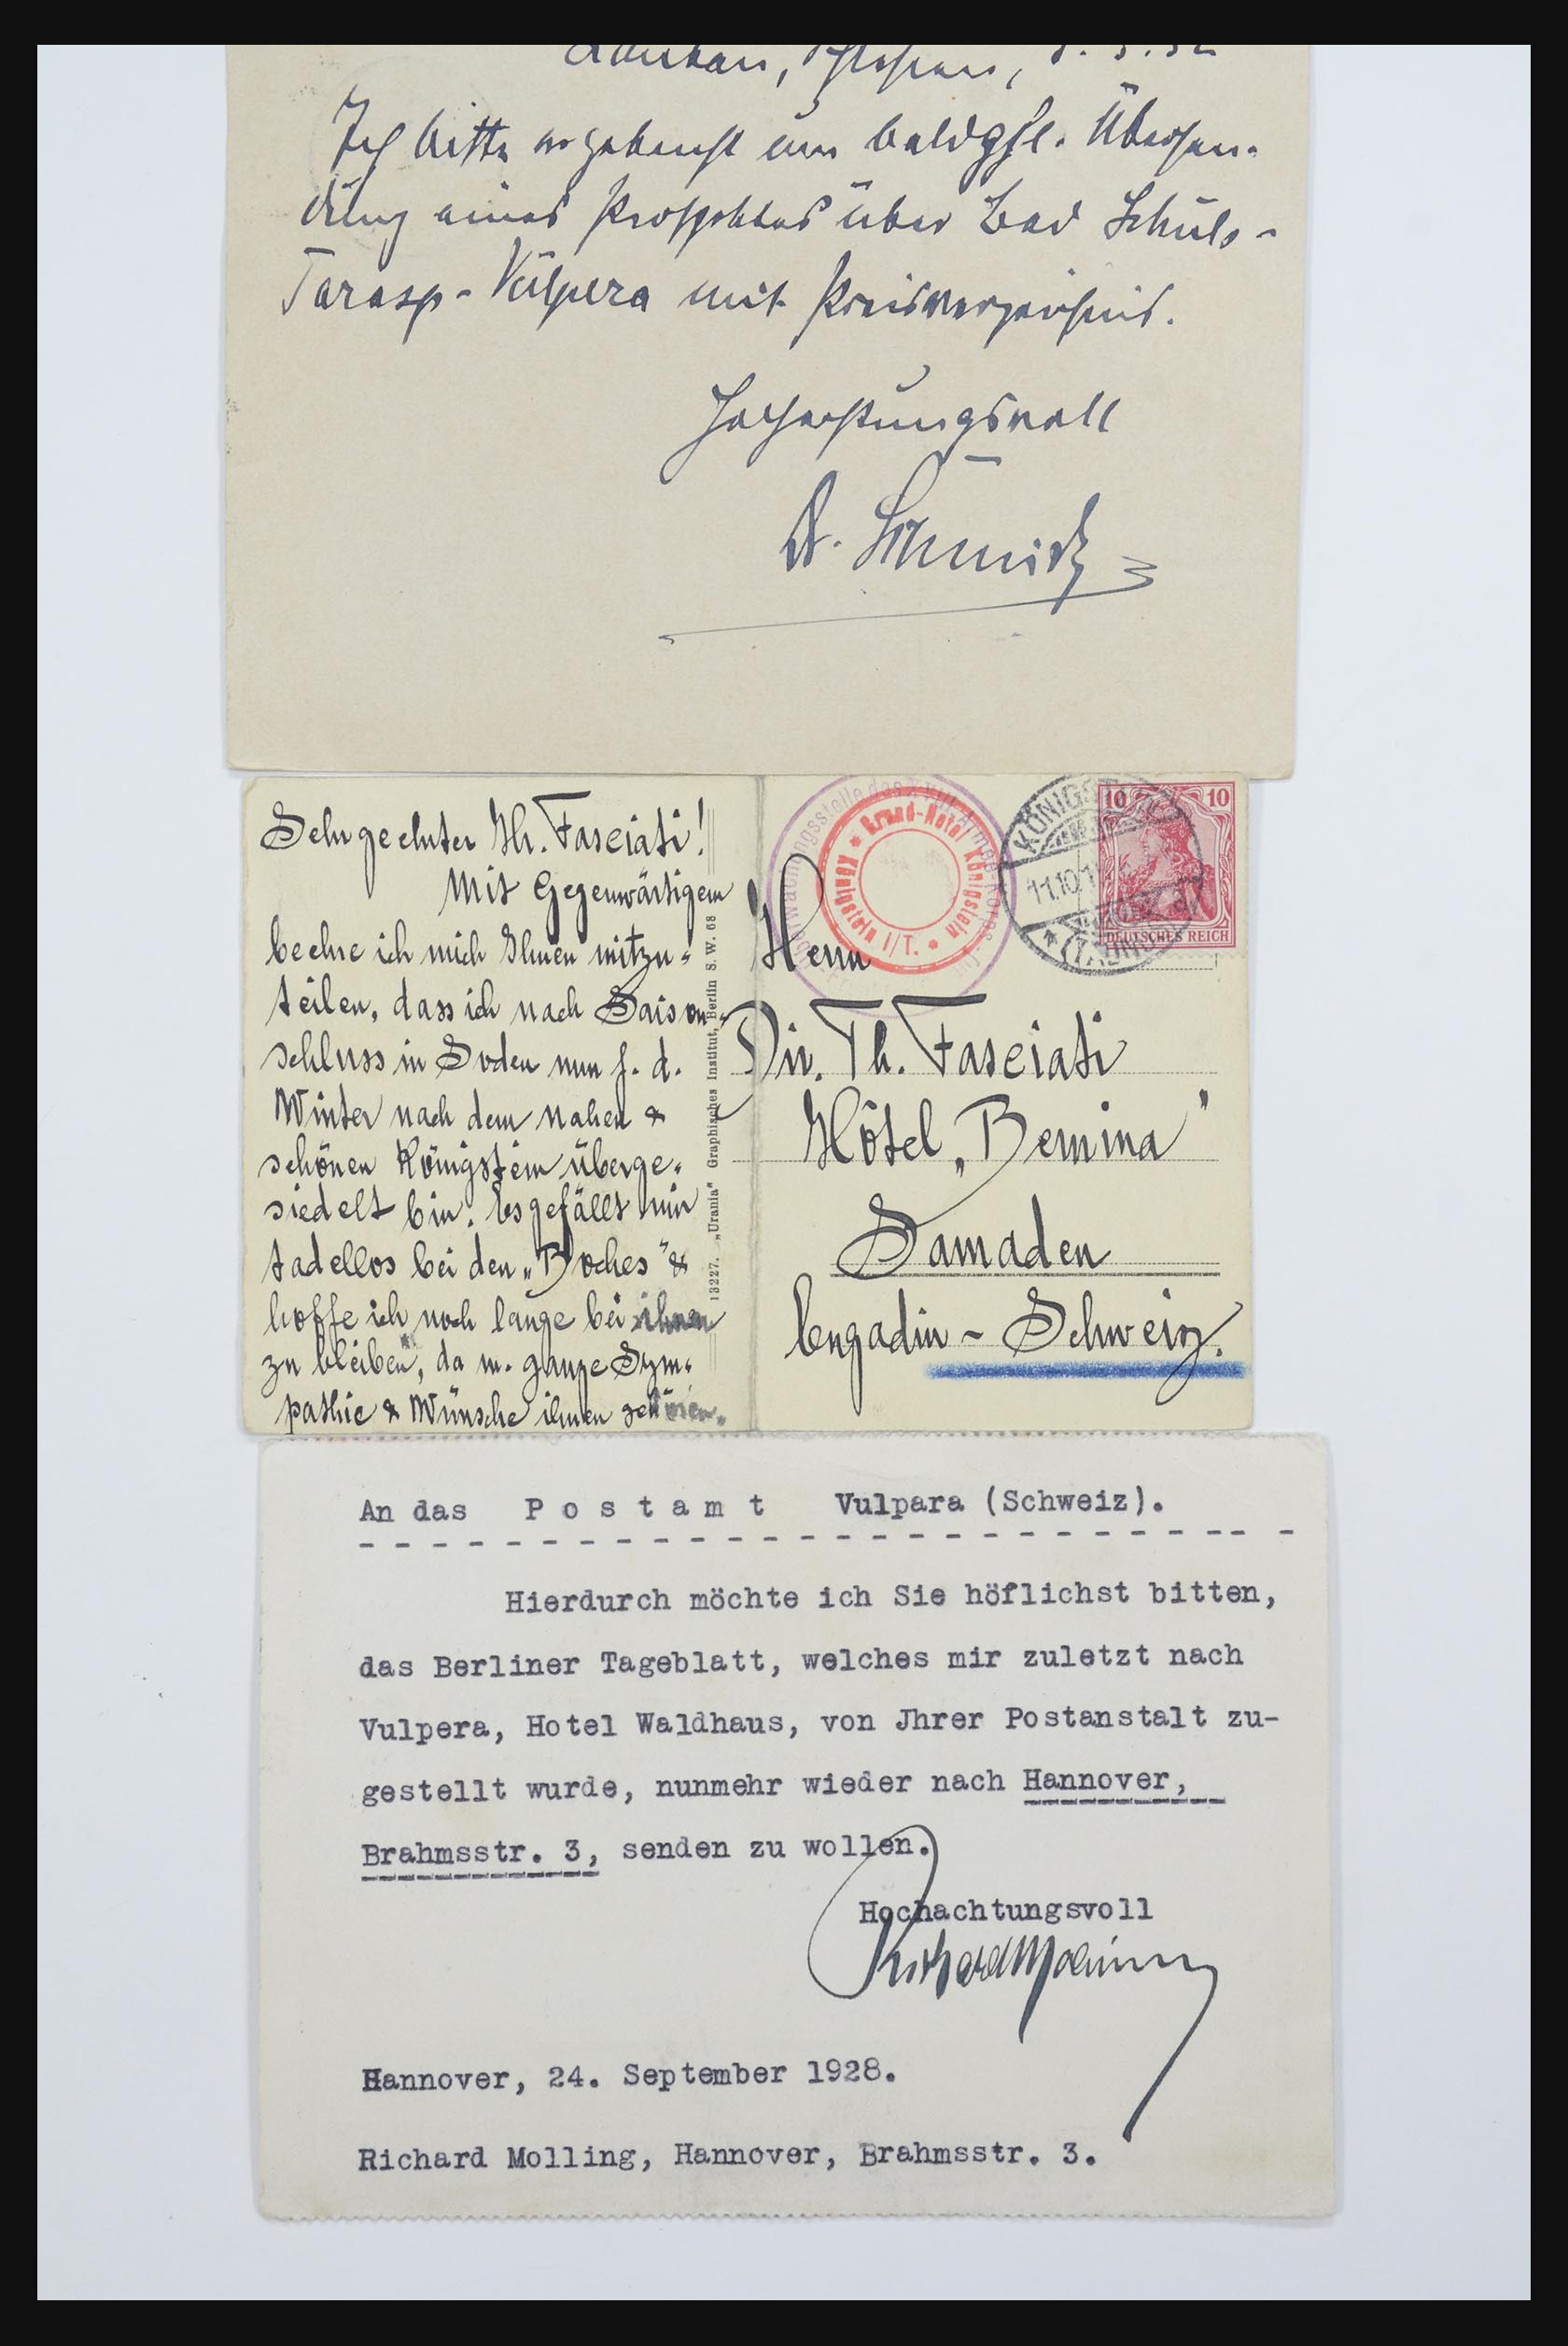 Lauban, Schlesien,
Ich bitte ergebenst um baldgfl. Übersen-
dung eines Prospektes über Bad Schuls-
Tarasp-Vulpera mit Preisverzeichnis.
Hochachtungsvoll
Dr. Schmidt
Sehr geehrter Hr. Fasciati!
Mit Gegenwärtigem
beehre ich mich Ihnen mitzu-
teilen, dass ich nach Saison-
schluss in Soden nun f. d.
Winter nach dem nahen &
schönen Königstein überge-
siedelt bin. Es gefällt mir
tadellos bei den „Boches" &
hoffe ich noch lange bei ihnen
zu bleiben, da m. ganze Sym-
pathie & Wünsche ihnen gehören.
13227. „Urania" Graphisches Institut, Berlin S. W. 68
Überwachungsstelle des XVIII. Armee-Korps
Grand-Hotel Königstein * Königstein i/T. *
KÖNIGSTEIN
11.10.1
(TAUNUS)
10 10
DEUTSCHES REICH
Herrn
Dir. Th. Fasciati
Hôtel „Bernina"
Samaden
Engadin - Schweiz.
An das Postamt Vulpara (Schweiz).
Hierdurch möchte ich Sie höflichst bitten,
das Berliner Tageblatt, welches mir zuletzt nach
Vulpera, Hotel Waldhaus, von Jhrer Postanstalt zu-
gestellt wurde, nunmehr wieder nach Hannover,
Brahmsstr. 3, senden zu wollen.
Hochachtungsvoll
Richard Molling
Hannover, 24. September 1928.
Richard Molling, Hannover, Brahmsstr. 3.